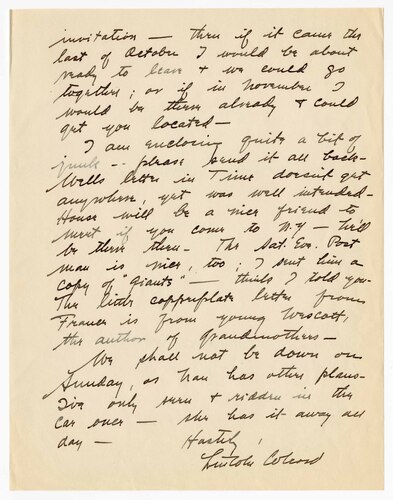 invitation — then if it came the
last of October I would be about
ready to leave & we could go
together; or if in November I
would be there already & could
get you located —
I am enclosing quite a bit of
junk -- please send it all back —
Wells letter in Time doesn't get
anywhere, yet was well intended —
House will be a nice friend to
meet if you come to N.Y. — he'll
be there then. The Sat. Eve. Post
man is nice, too; I sent him a
copy of "Giants" — think I told you —
The little copperplate letter from
France is from young Wescott,
the author of Grandmothers —
We shall not be down on
Sunday, as Nan has other plans —
I've only seen & ridden in the
car once — she has it away all
day — Hastily,
Lincoln Colcord